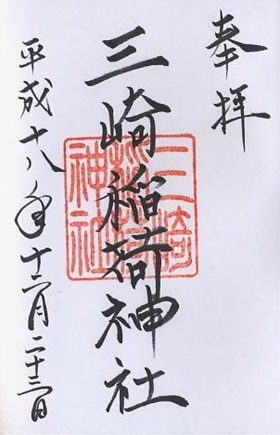 奉拝
三崎稲荷神社
三崎稲荷神社
平成十八年十二月二十三日